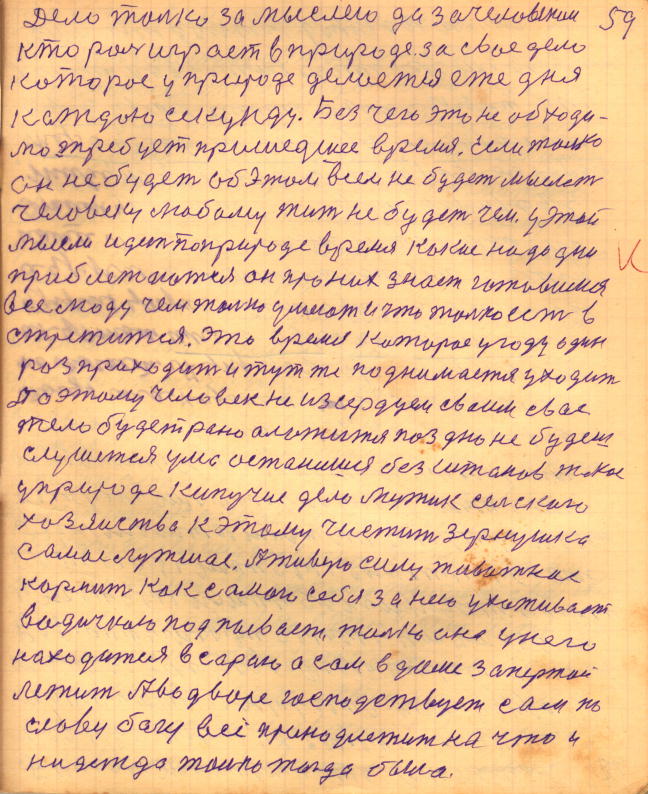 Дело толко за мыслею да за человеком 59
кто роль играет в природе за свое дело
которое у природе делается еже дня
каждою секунду. Без чего это не обходи-
мо этребует пришедшее время. если толко
он не будет об этом всем не будет мыслет
человеку любому жит не будет чем. у этой
мысли идет по природе время какое надо дни
приблежаются он про них знает готовится
все моду чем толко умеют и что толко ест в
стретится. Это время которое у году один
роз проходит и тут же поднимается уходит
Поэтому человек не изсердуем своим свое
тело будет рано оложится поздно не будеш
слушется ума останишся без штанов тожое
у природе кипучие дело мужик селского
хозяиства к этому чистит зернушка
самое лутшае. А живую силу животное
кормит как самого себя за нею ухаживает
водичкою подпаивает, толко она у него
находится в сараю а сам в доме запертой
лежит А во дворе господствует сам по
слову богу всё принодлежит на что и
надежда толко тогда была.